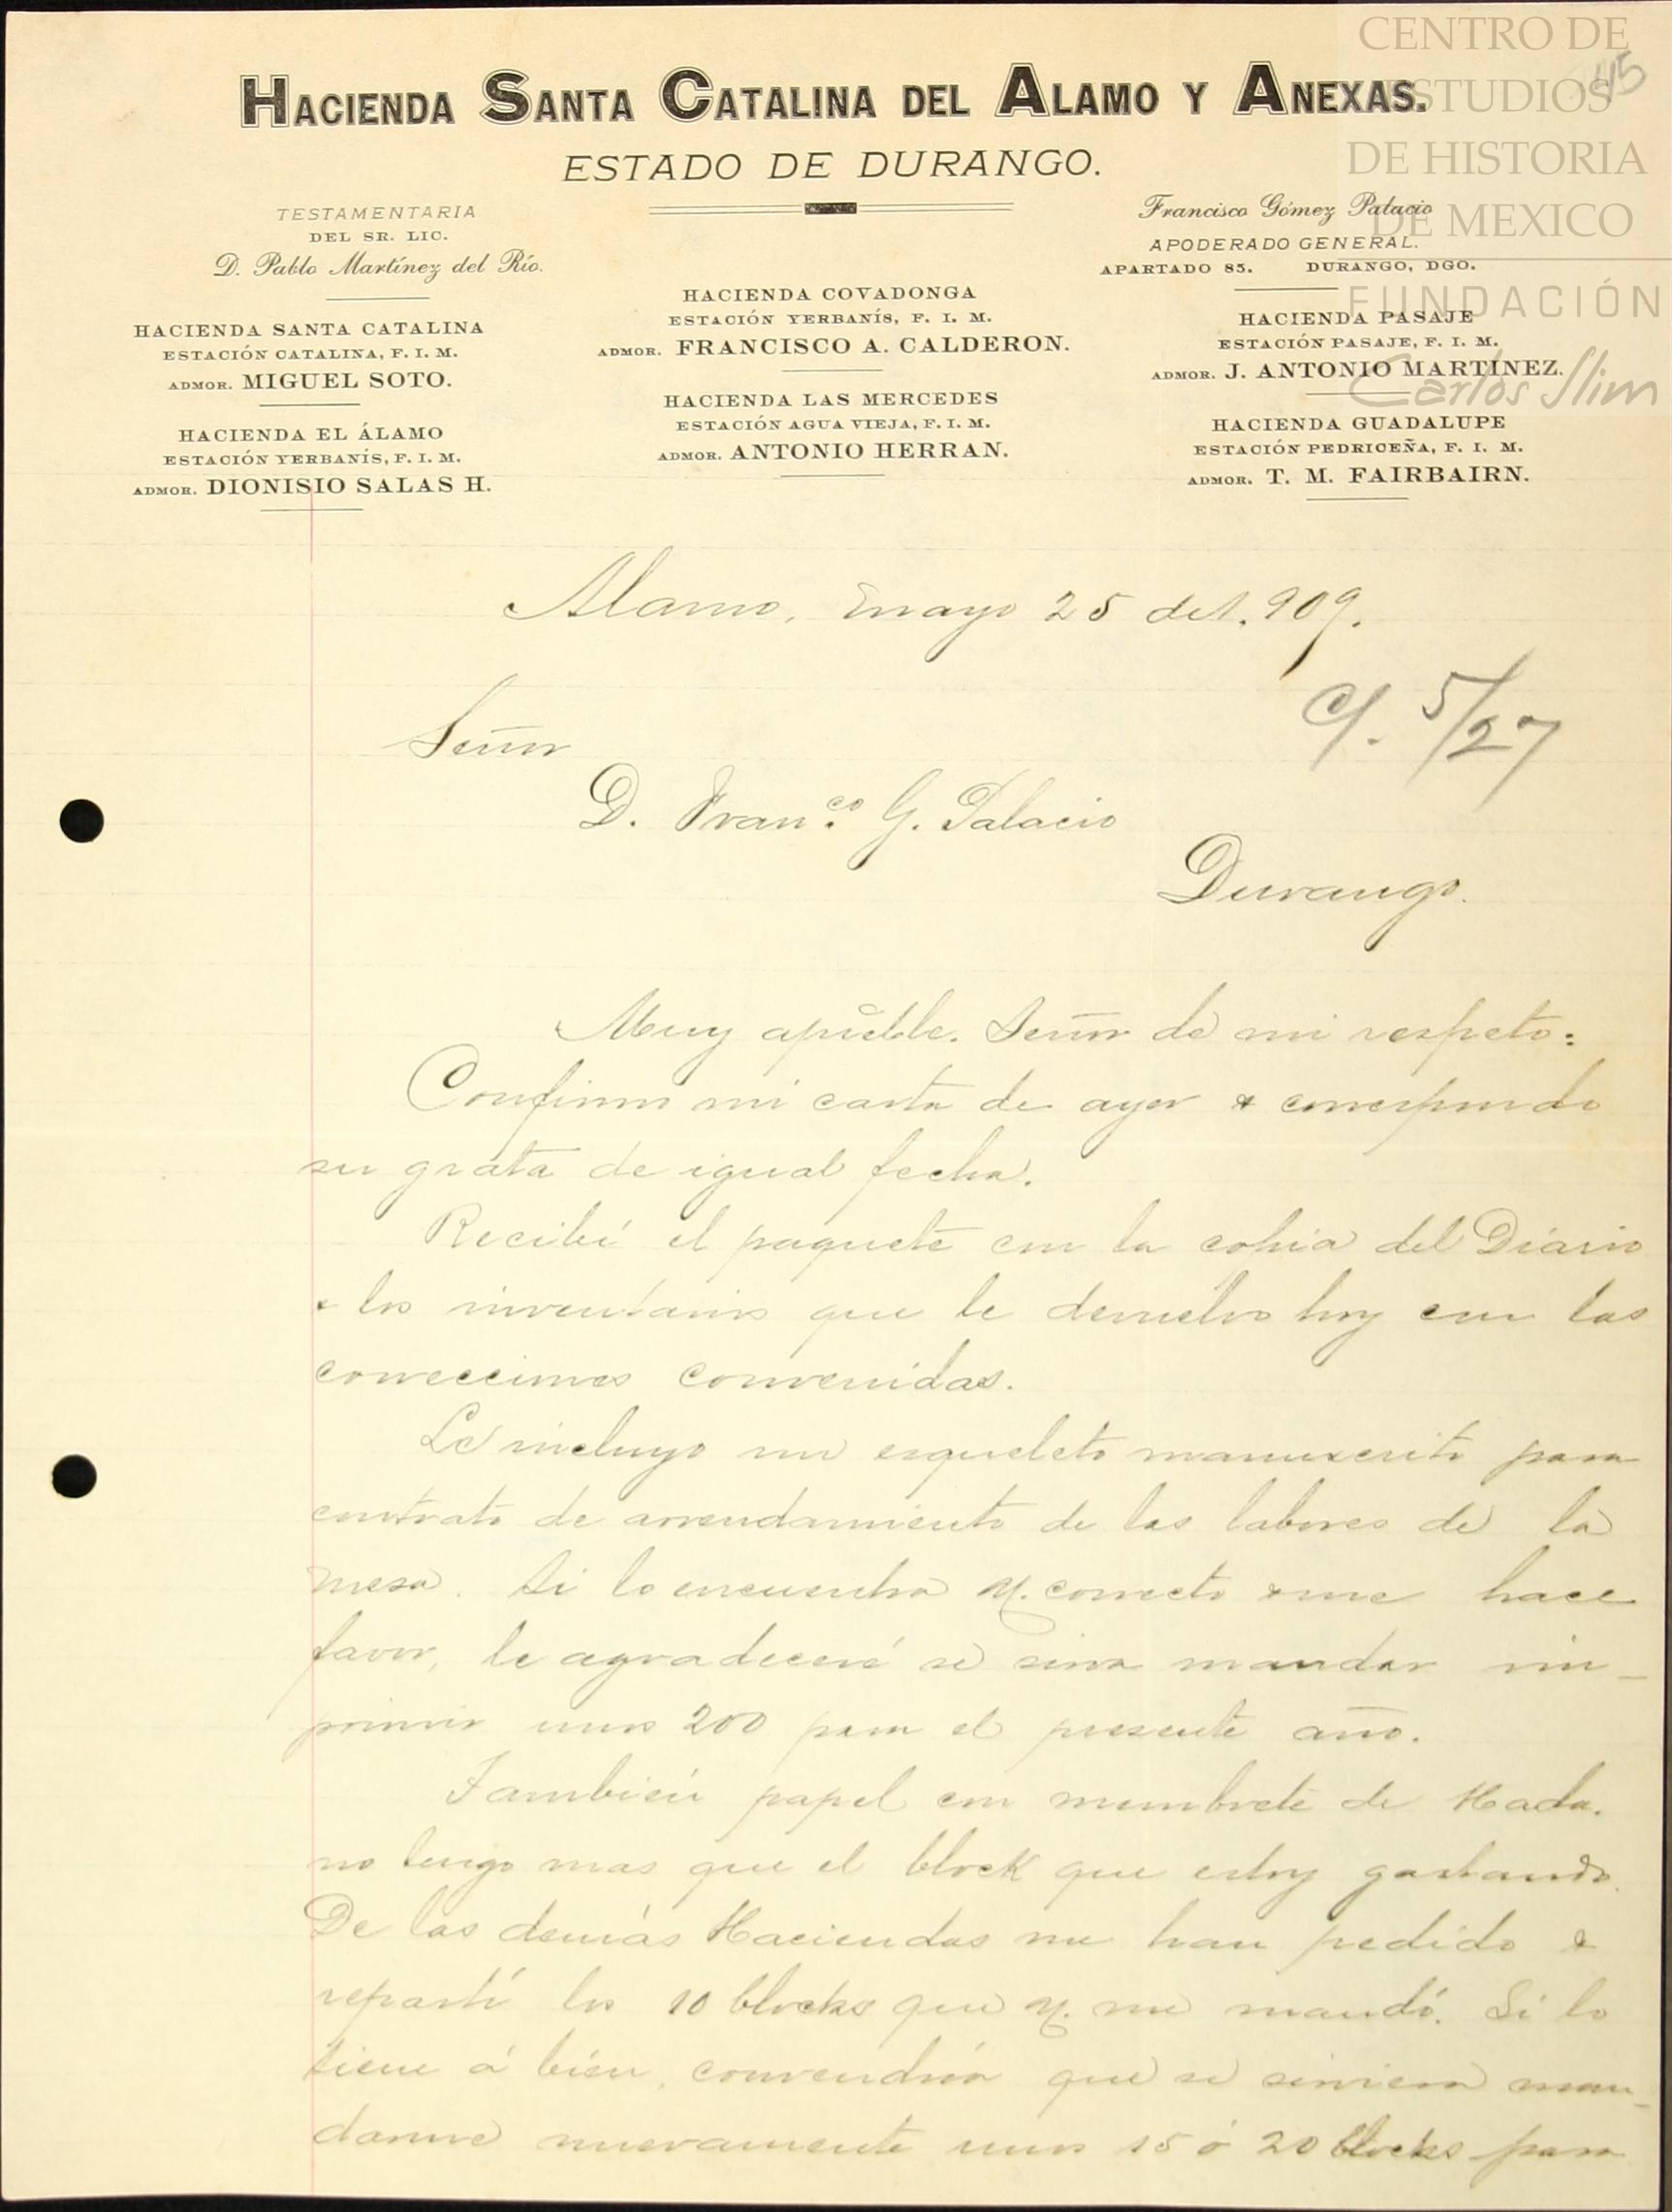 CENTRO DE
ESTUDIOS
DE HISTORIA
DE MEXICO
FUNDACIÓN
Carlos Slim
HACIENDA SANTA CATALINA DEL ALAMO Y ANEXAS.
ESTADO DE DURANGO.
TESTAMENTARIA
DEL SR. LIC.
D. Pablo Martínez del Río.
HACIENDA SANTA CATALINA
ESTACIÓN CATALINA, F. I. M.
ADMOR. MIGUEL SOTO.
HACIENDA EL ÁLAMO
ESTACIÓN YERBANÍS, F. I. M.
ADMOR. DIONISIO SALAS H.
HACIENDA COVADONGA
ESTACIÓN YERBANÍS, F. I. M.
ADMOR. FRANCISCO A. CALDERON.
HACIENDA LAS MERCEDES
ESTACIÓN AGUA VIEJA, F. I. M.
ADMOR. ANTONIO HERRAN.
Francisco Gómez Palacio
APODERADO GENERAL.
APARTADO 85. DURANGO, DGO.
HACIENDA PASAJE
ESTACIÓN PASAJE, F. I. M.
ADMOR. J. ANTONIO MARTINEZ.
HACIENDA GUADALUPE
ESTACIÓN PEDRICEÑA, F. I. M.
ADMOR. T. M. FAIRBAIRN.
Alamo, Mayo 25 de 1.909.
C/. 5/27
Señor
D. Fran.co G. Palacio
Durango.
Muy apreble. Señor de mi respeto:
Confirmo mi carta de ayer & correspondo
su grata de igual fecha.
Recibí el paquete con la copia del Diario
& los inventarios que le devuelvo hoy con las
correcciones convenidas.
Le incluyo un esqueleto manuscrito para
contrato de arrendamiento de las labores de la
mesa. Si lo encuentra U. correcto & me hace
favor, le agradeceré se sirva mandar im-
primir unos 200 para el presente año.
También papel con membrete de Hada.
no tengo mas que el block que estoy gastando.
De las demás Haciendas me han pedido &
repartí los 10 blocks que U. me mandó. Si lo
tiene á bien, convendría que se sirviera man-
darme nuevamente unos 15 ó 20 blocks para